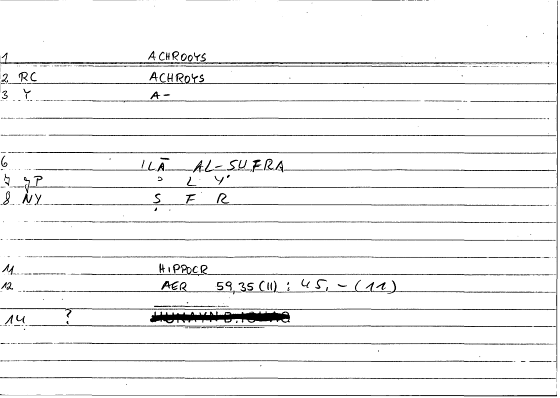 1 ACHROOYS
2 RC ACHROYS
3 Y A-
6 ILĀ AL-SUFRA
7 YP ʾ L Yʾ
8 NY Ṣ F R
11 HIPPOCR
12 AER 59,35(11) : 45,-(11)
14 ? HUNAYN B. ISHAQ